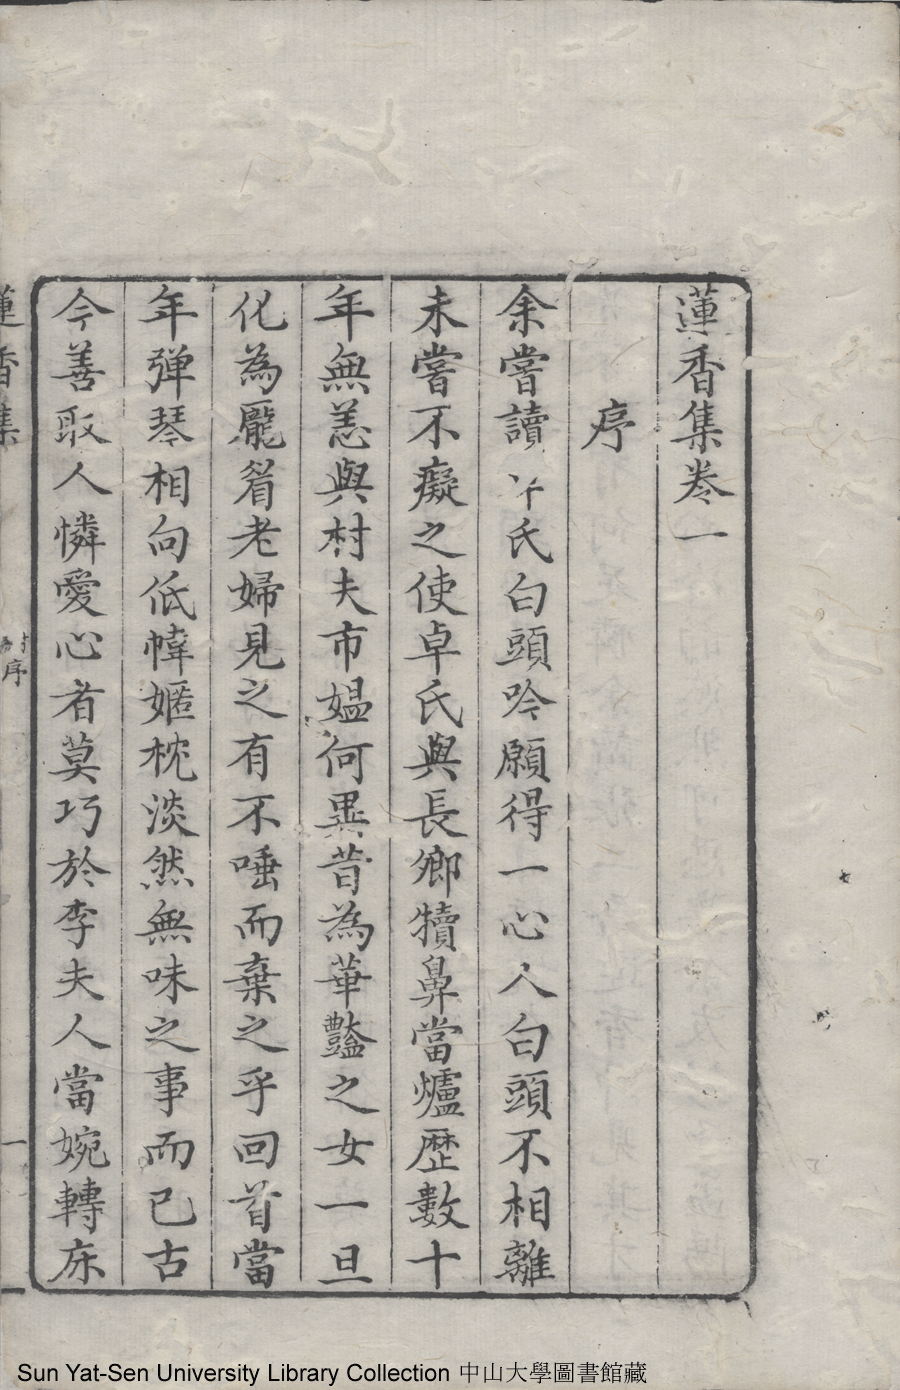 蓮香集卷一
序
余嘗讀氏白頭吟願得一心人白頭不相離
未嘗不癡之使卓氏與長鄉犢鼻當爐歷數十
年無恙與村夫市媪何異昔為華豔之女一旦
化為龎眉老婦見之有不唾而棄之乎回首當
年弹琴相向低幃嫟枕淡然無味之事而已古
今善取人憐愛心者莫巧於李夫人當婉轉床
蓮香集
序
一
Sun Yat-Sen University Library Collection 中山大學圖書館藏